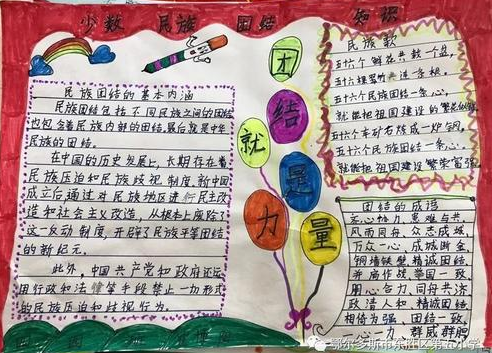 少数 民族 团结 知识
民族团结的基本内涵
民族团结包括不同民族之间的团结
也包含着民族内部的团结,最后就是中华
民族的团结。
在中国的历史发展上,长期存在着
民族压迫和民族歧视制度,新中国
成立后,通过对民族地区进行民主改
造和社会主义改造,从根本上废除了
这一反动制度,开辟了民族平等团结
的新纪元。
此外,中国共产党和政府还运
用行政和法律等手段禁止一切形式
的民族压迫和歧视行为。
团
结
就
是
力
量
民族歌
五十六个鲜花共
五十六
五十六个民族团结一条心,
就能把祖国建设的繁花似锦
五十六
五十六个民族团结一条心,
就能把祖国建设繁荣富强
团结的成语
齐心协力,患难与共,
风雨同舟,众志成城,
万众一心,成城断金,
铜墙铁壁,精诚团结,
并肩作战,举国一致
同心合力,同舟共济
政清人和,精诚团结,
相倚为强,团结一致,
心一力,群威群胆
鄂尔多斯市东胜区第五小学